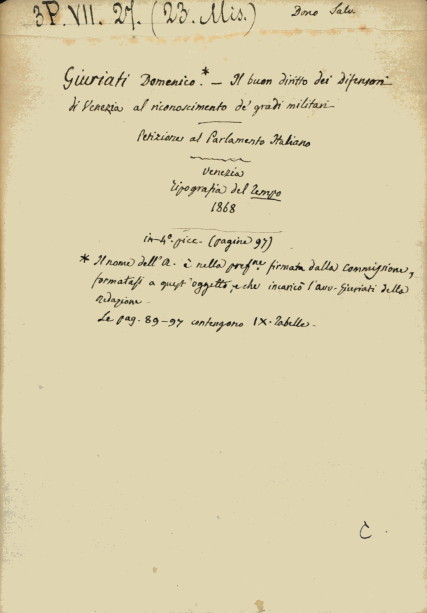 3P. VII. 27. (23. Mis.) Dono Salv.
Giuriati Domenico.* – Il buon diritto dei Difensori
di Venezia al riconoscimento de' gradi militari
Petizione al Parlamento Italiano
Venezia
Tipografia del Tempo
1868
in-4°. picc. (pagine 97)
* Il nome dell'A. è nella prefne. firmata dalla Commissione,
formatasi a quest'oggetto, e che incaricò l'avv. Giuriati della
redazione.
Le pag. 89-97 contengono IX. Tabelle.
C